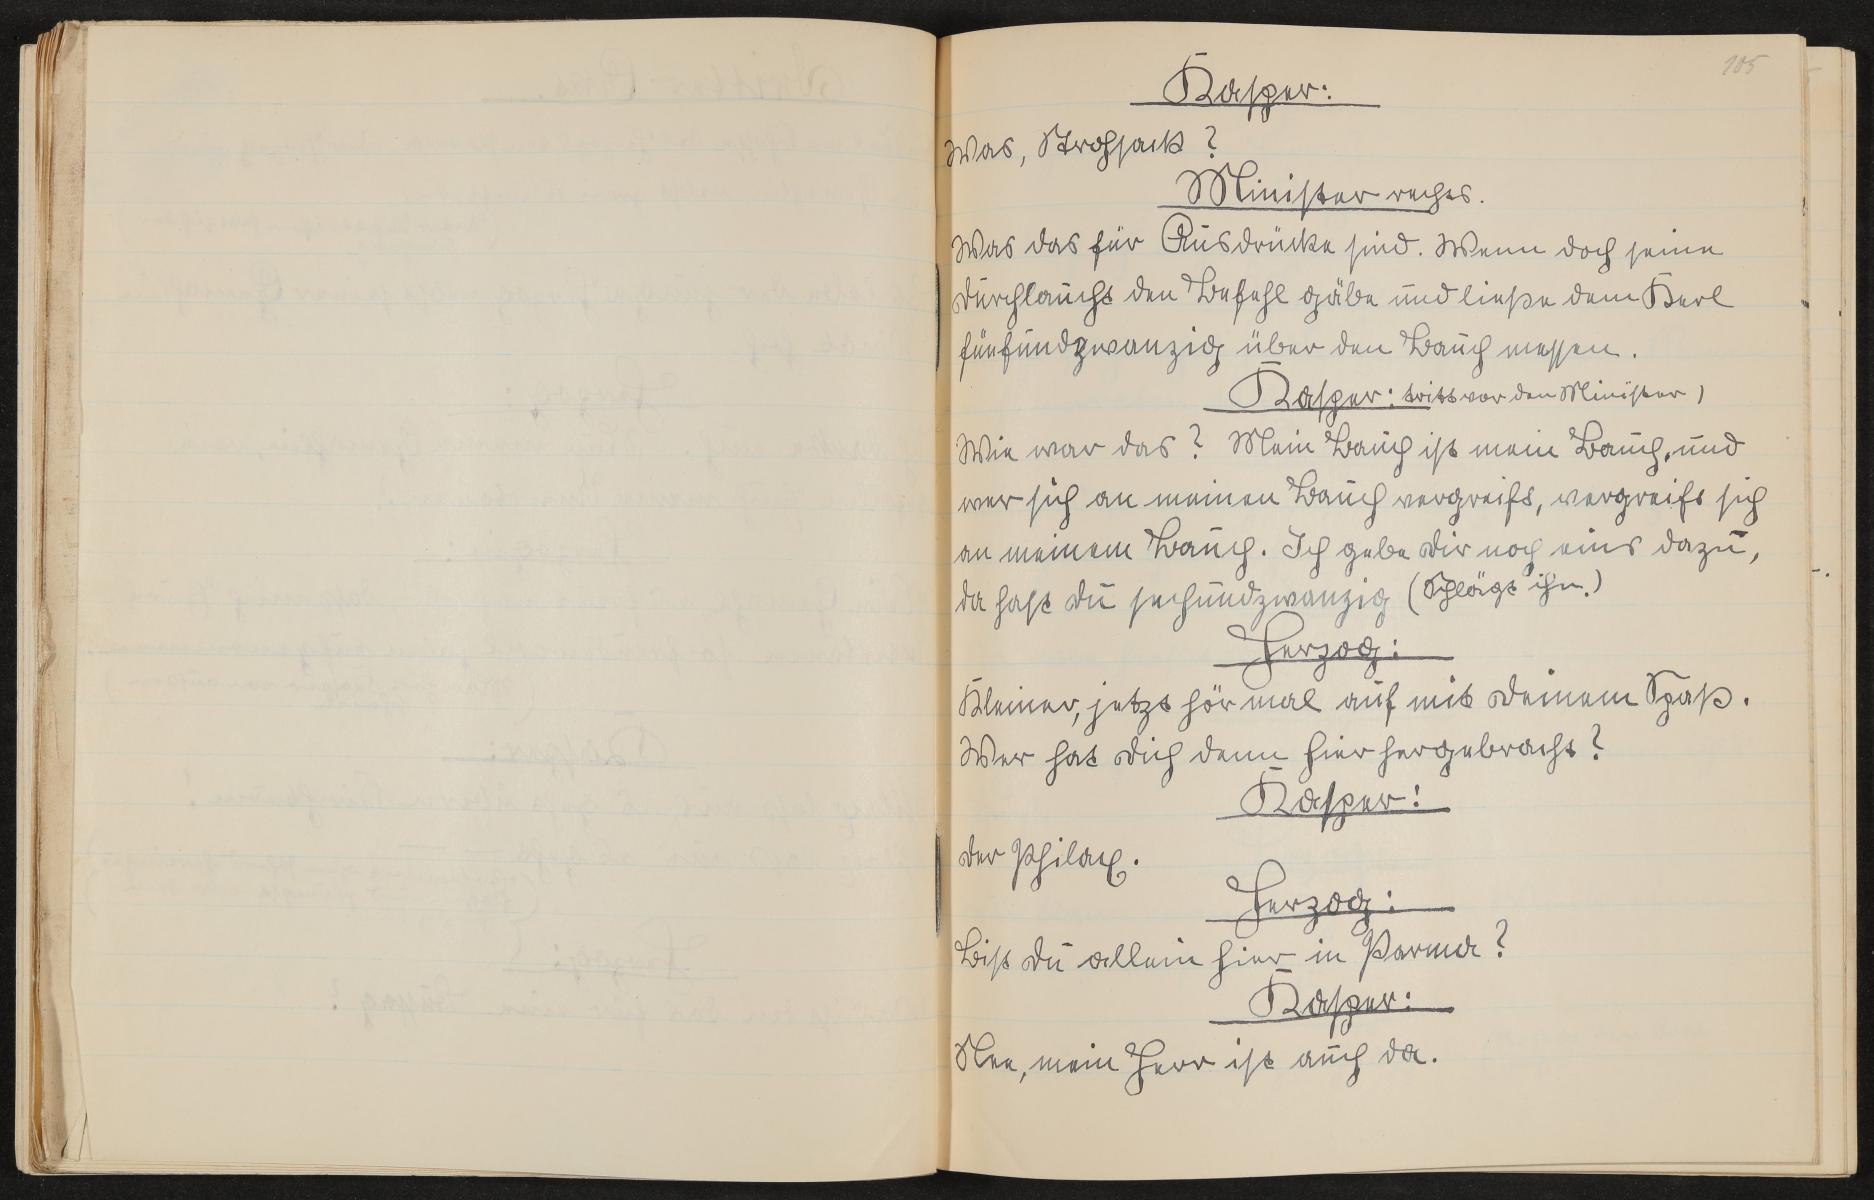 105
Kasper:
Was, Strohsack?
Minister rechts.
Was das für Ausdrücke sind. Wenn doch seine
Durchlaucht den Befehl gäbe und ließe dem Kerl
fünfundzwanzig über den Bauch messen.
Kasper: tritt vor den Minister)
Wie war das? Mein Bauch ist mein Bauch, und
wer sich an meinen Bauch vergreift, vergreift sich
an meinem Bauch. Ich gebe dir noch eins dazu,
da hast du sechundzwanzig (Schlägt ihn.)
Herzog:
Kleiner, jetzt hör mal auf mit deinem Spaß.
Wer hat dich denn hier hergebracht?
Kasper:
Der Philax.
Herzog:
Bist du allein hier in Parma?
Kasper:
Nee, mein Herr ist auch da.